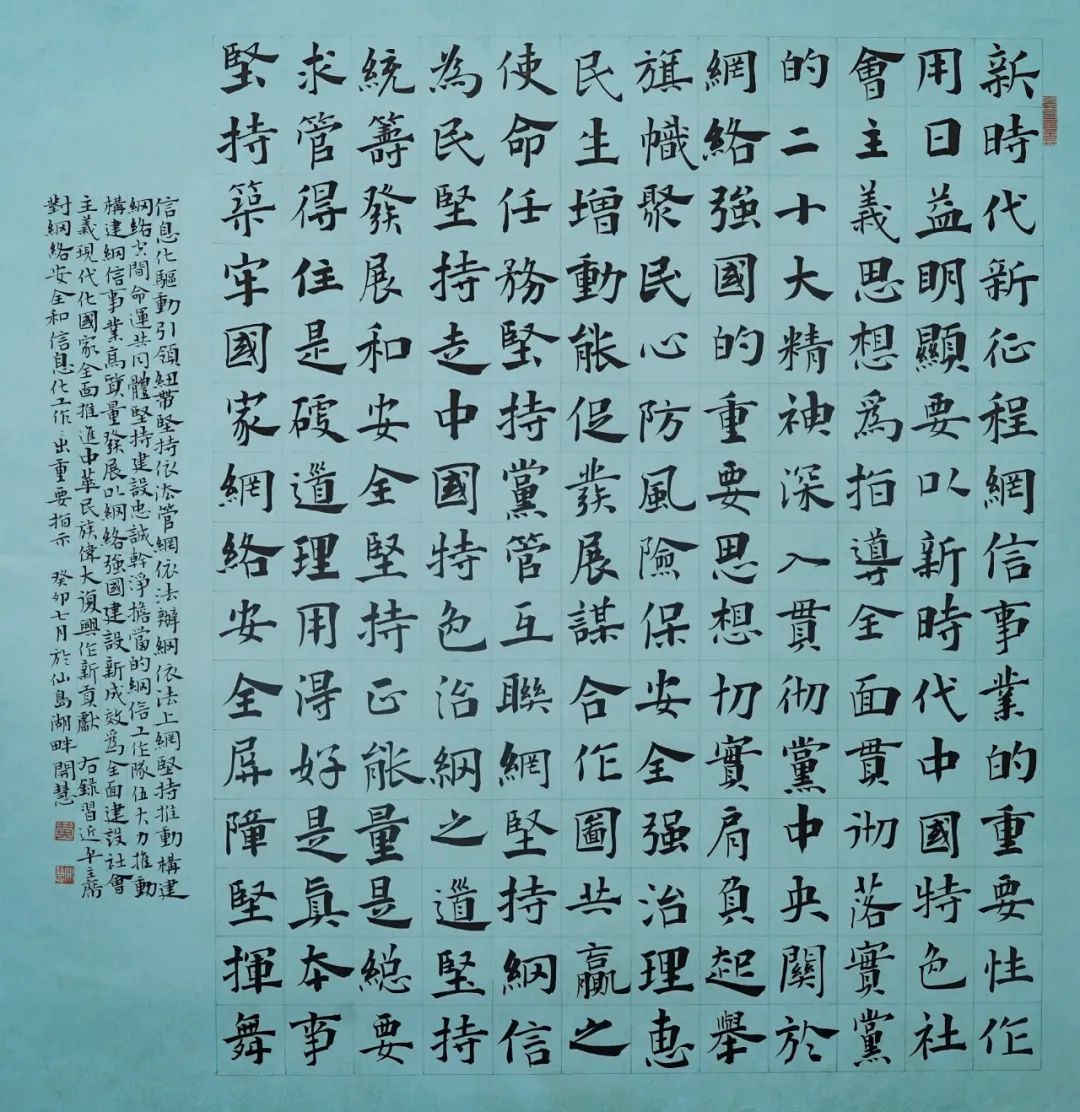 新時代新征程網信事業的重要性作
用日益明顯要以新時代中國特色社
會主義思想爲指導全面貫彻落實黨
的二十大精神深入貫彻黨中央關於
網絡強國的重要思想切實肩負起舉
旗幟聚民心防風險保安全强治理惠
民生增動能促發展謀合作圖共贏之
使命任務堅持黨管互聯網堅持網信
為民堅持走中國特色治網之道堅持
統籌發展和安全堅持正能量是總要
求管得住是硬道理用得好是真本事
堅持築牢國家網絡安全屏障堅揮舞
信息化驅動引領紐帶堅持依法管網依法辦網依法上網堅持推動構建
網絡空間命運共同體堅持建設忠誠幹淨擔當的網信工作隊伍大力推動
構建網信事業高質量發展以網絡強國建設新成效爲全面建設社會
主義現代化國家全面推進中華民族偉大復興作新貢獻 右錄習近平主席
對網絡安全和信息化工作出重要指示 癸卯七月於仙島湖畔 開慧